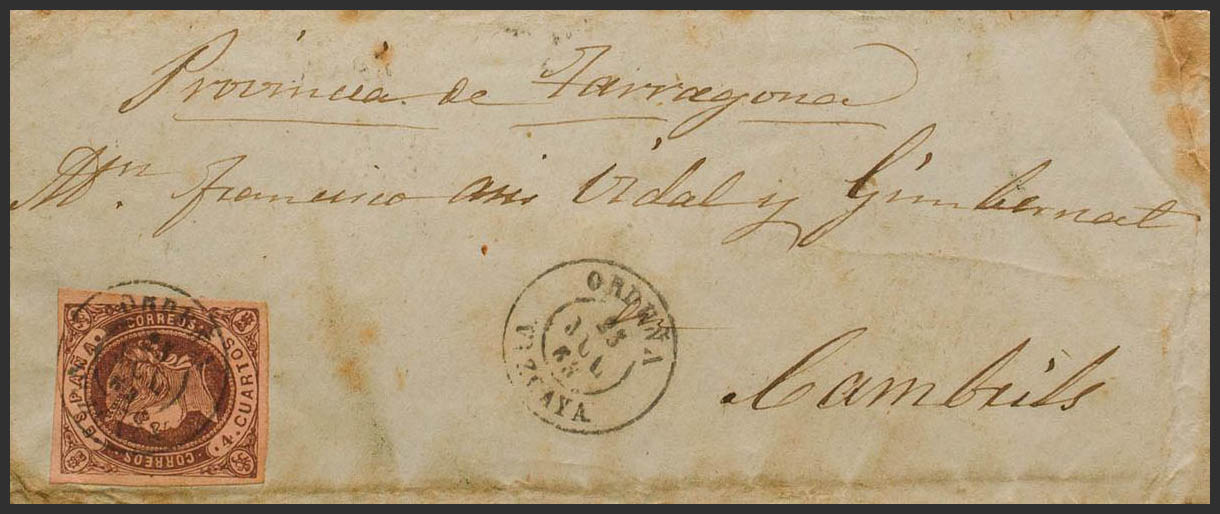 Provincia de Tarragona
Dn. Francisco Vidal y Gimbernat
ORDUÑA
25
JUL
63
VIZCAYA
Cambrils
CORREOS
ESPAÑA
4 CUARTOS
CORREOS